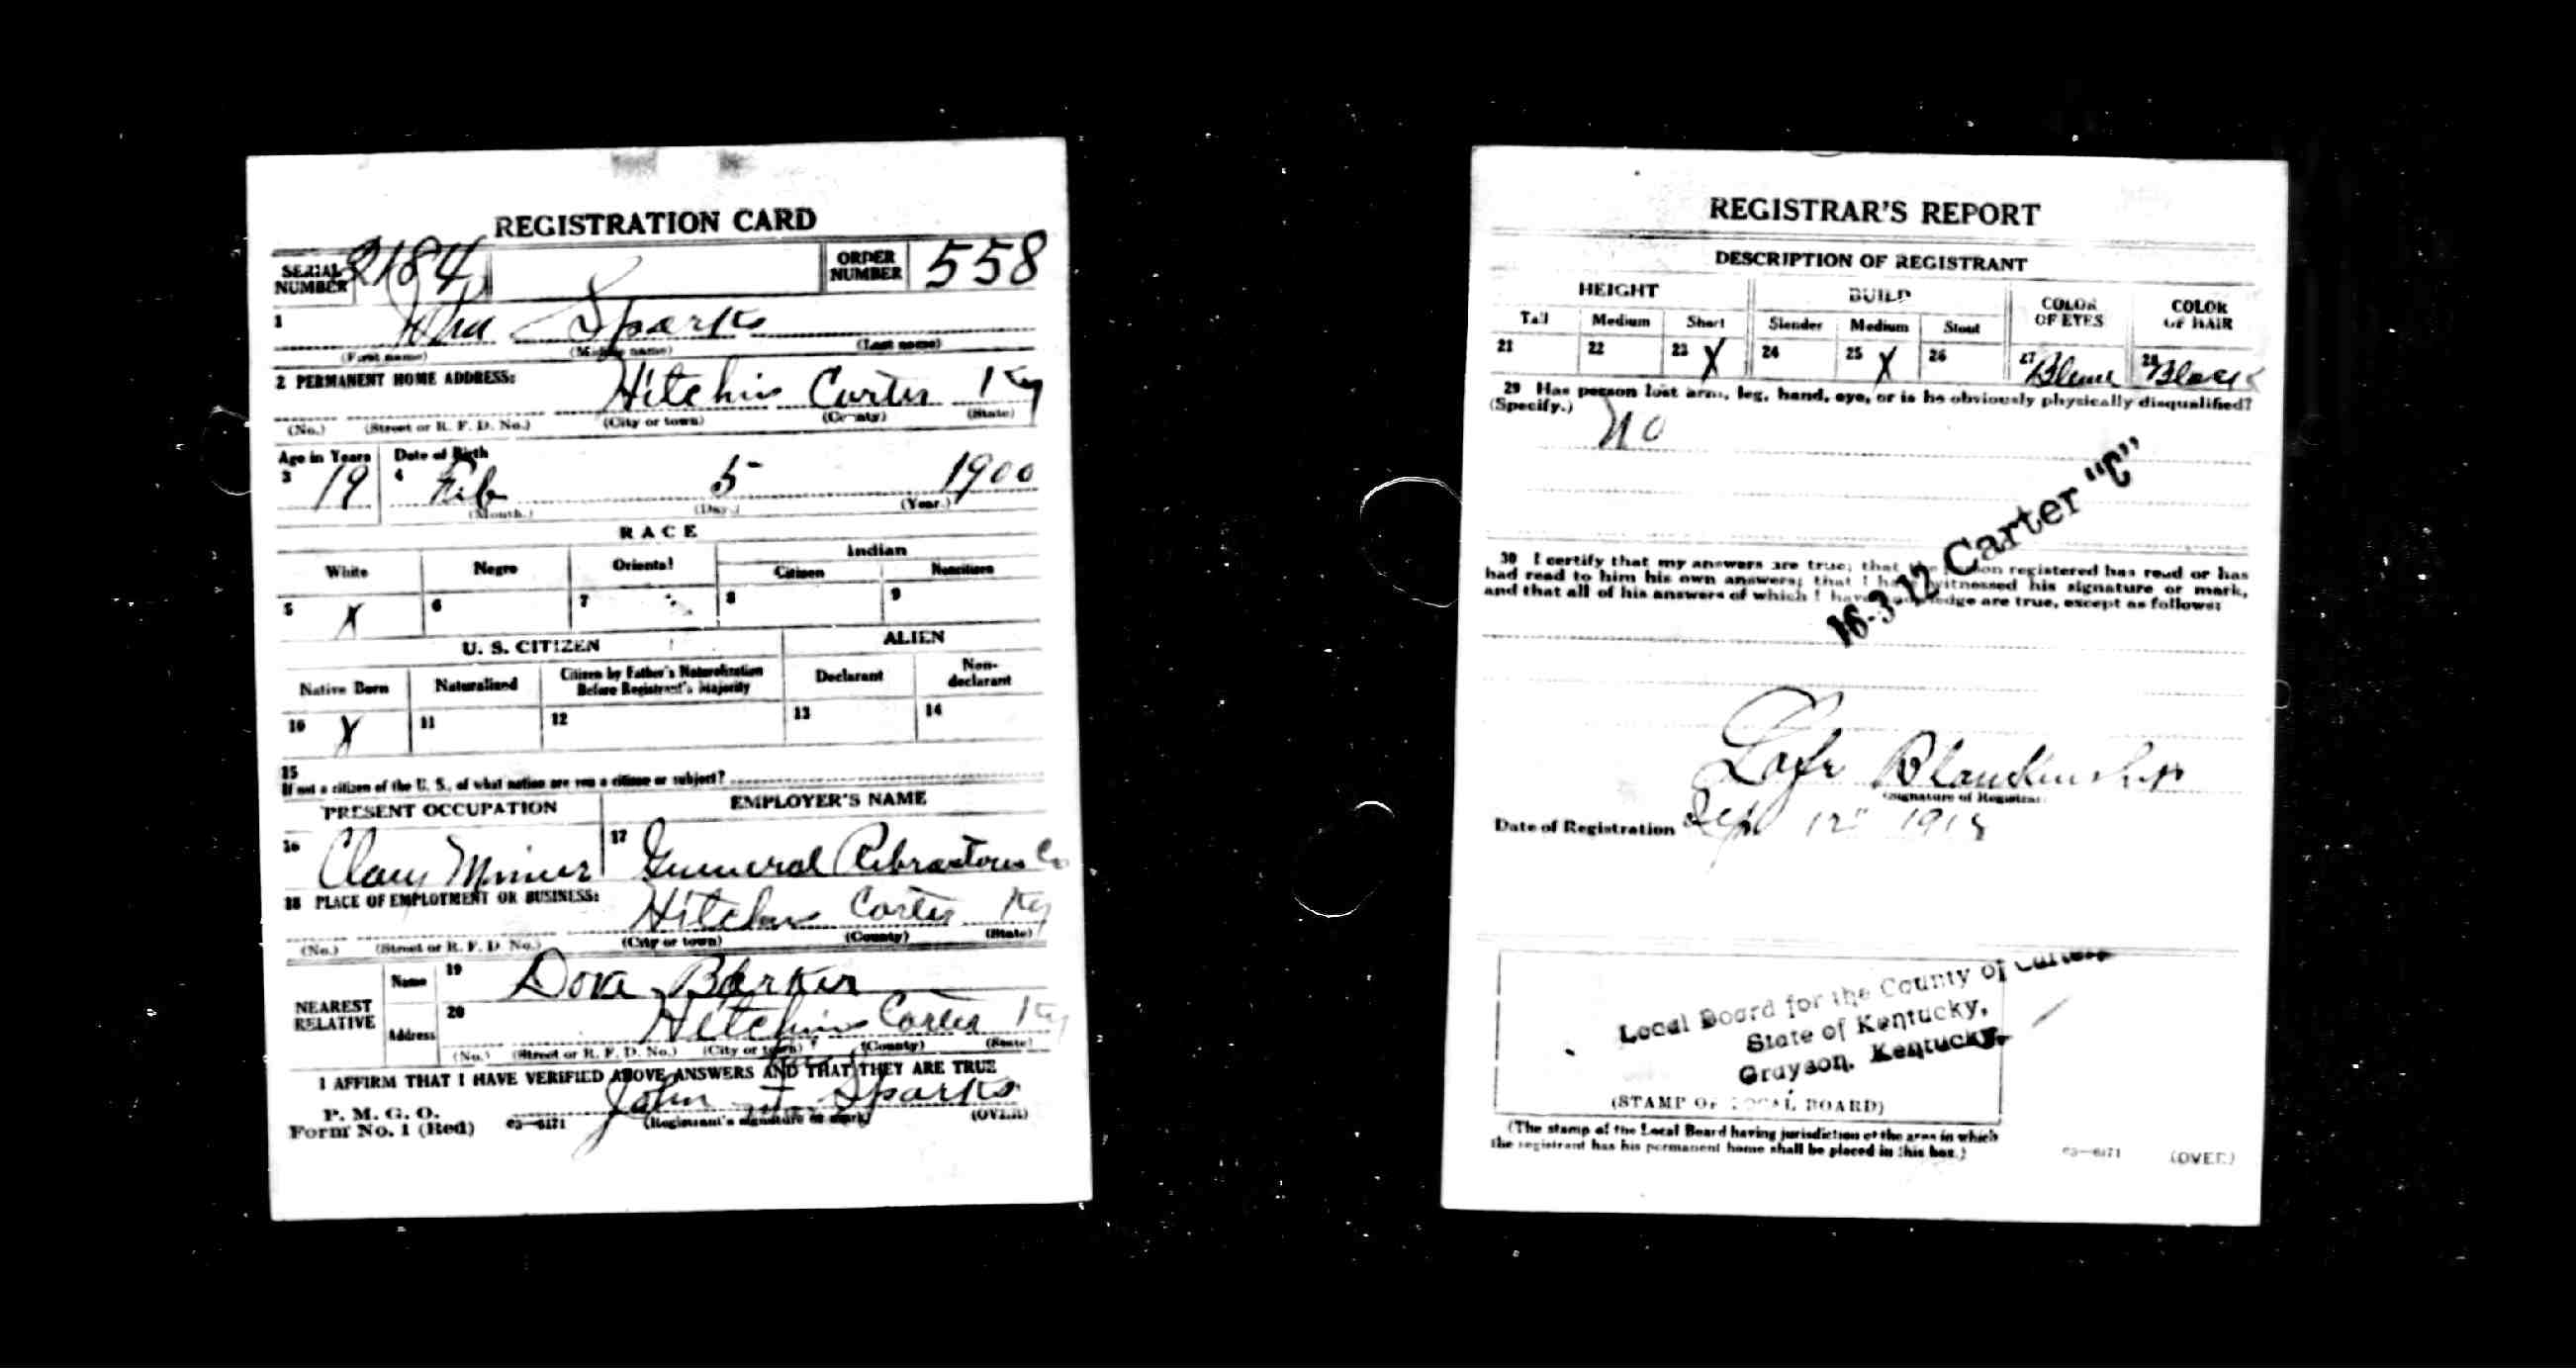 REGISTRATION CARD
SERIAL NUMBER 2184 ORDER NUMBER 558
1 John Sparks
(First name) (Middle name) (Last name)
2 PERMANENT HOME ADDRESS: Hitchins Carter Ky
(No.) (Street or R. F. D. No.) (City or town) (County) (State)
Age in Years Date of Birth
3 19 4 Feb 5 1900
(Month.) (Day.) (Year.)
RACE
White Negro Oriental Indian
Citizen Noncitizen
5 X 6 7 8 9
U. S. CITIZEN ALIEN
Native Born Naturalized Citizen by Father's Naturalization Before Registrant's Majority Declarant Non-declarant
10 X 11 12 13 14
15
If not a citizen of the U. S., of what nation are you a citizen or subject?
PRESENT OCCUPATION EMPLOYER'S NAME
16 Clay Miner 17 General Co
18 PLACE OF EMPLOYMENT OR BUSINESS: Hitchins Carter Ky
(No.) (Street or R. F. D. No.) (City or town) (County) (State)
NEAREST RELATIVE
Name 19 Dora Barker
Address 20 Hitchins Carter Ky
(No.) (Street or R. F. D. No.) (City or town) (County) (State)
I AFFIRM THAT I HAVE VERIFIED ABOVE ANSWERS AND THAT THEY ARE TRUE
P. M. G. O.
Form No. 1 (Red) 03—6171 John Sparks
(Registrant's signature or mark) (OVER)
REGISTRAR'S REPORT
DESCRIPTION OF REGISTRANT
HEIGHT BUILD COLOR OF EYES COLOR OF HAIR
Tall Medium Short Slender Medium Stout
21 22 23 X 24 25 X 26 27 28 Black
29 Has person lost arm, leg, hand, eye, or is he obviously physically disqualified?
(Specify.) No
16-3-12 Carter "C"
30 I certify that my answers are true; that the person registered has read or has
had read to him his own answers; that I have witnessed his signature or mark,
and that all of his answers of which I have knowledge are true, except as follows:
Lafe Blankenship
(Signature of Registrar)
Date of Registration Sept 12" 1918
Local Board for the County of Carter,
State of Kentucky,
Grayson, Kentucky.
(STAMP OF LOCAL BOARD)
(The stamp of the Local Board having jurisdiction of the area in which
the registrant has his permanent home shall be placed in this box.)
03—6171 (OVER)